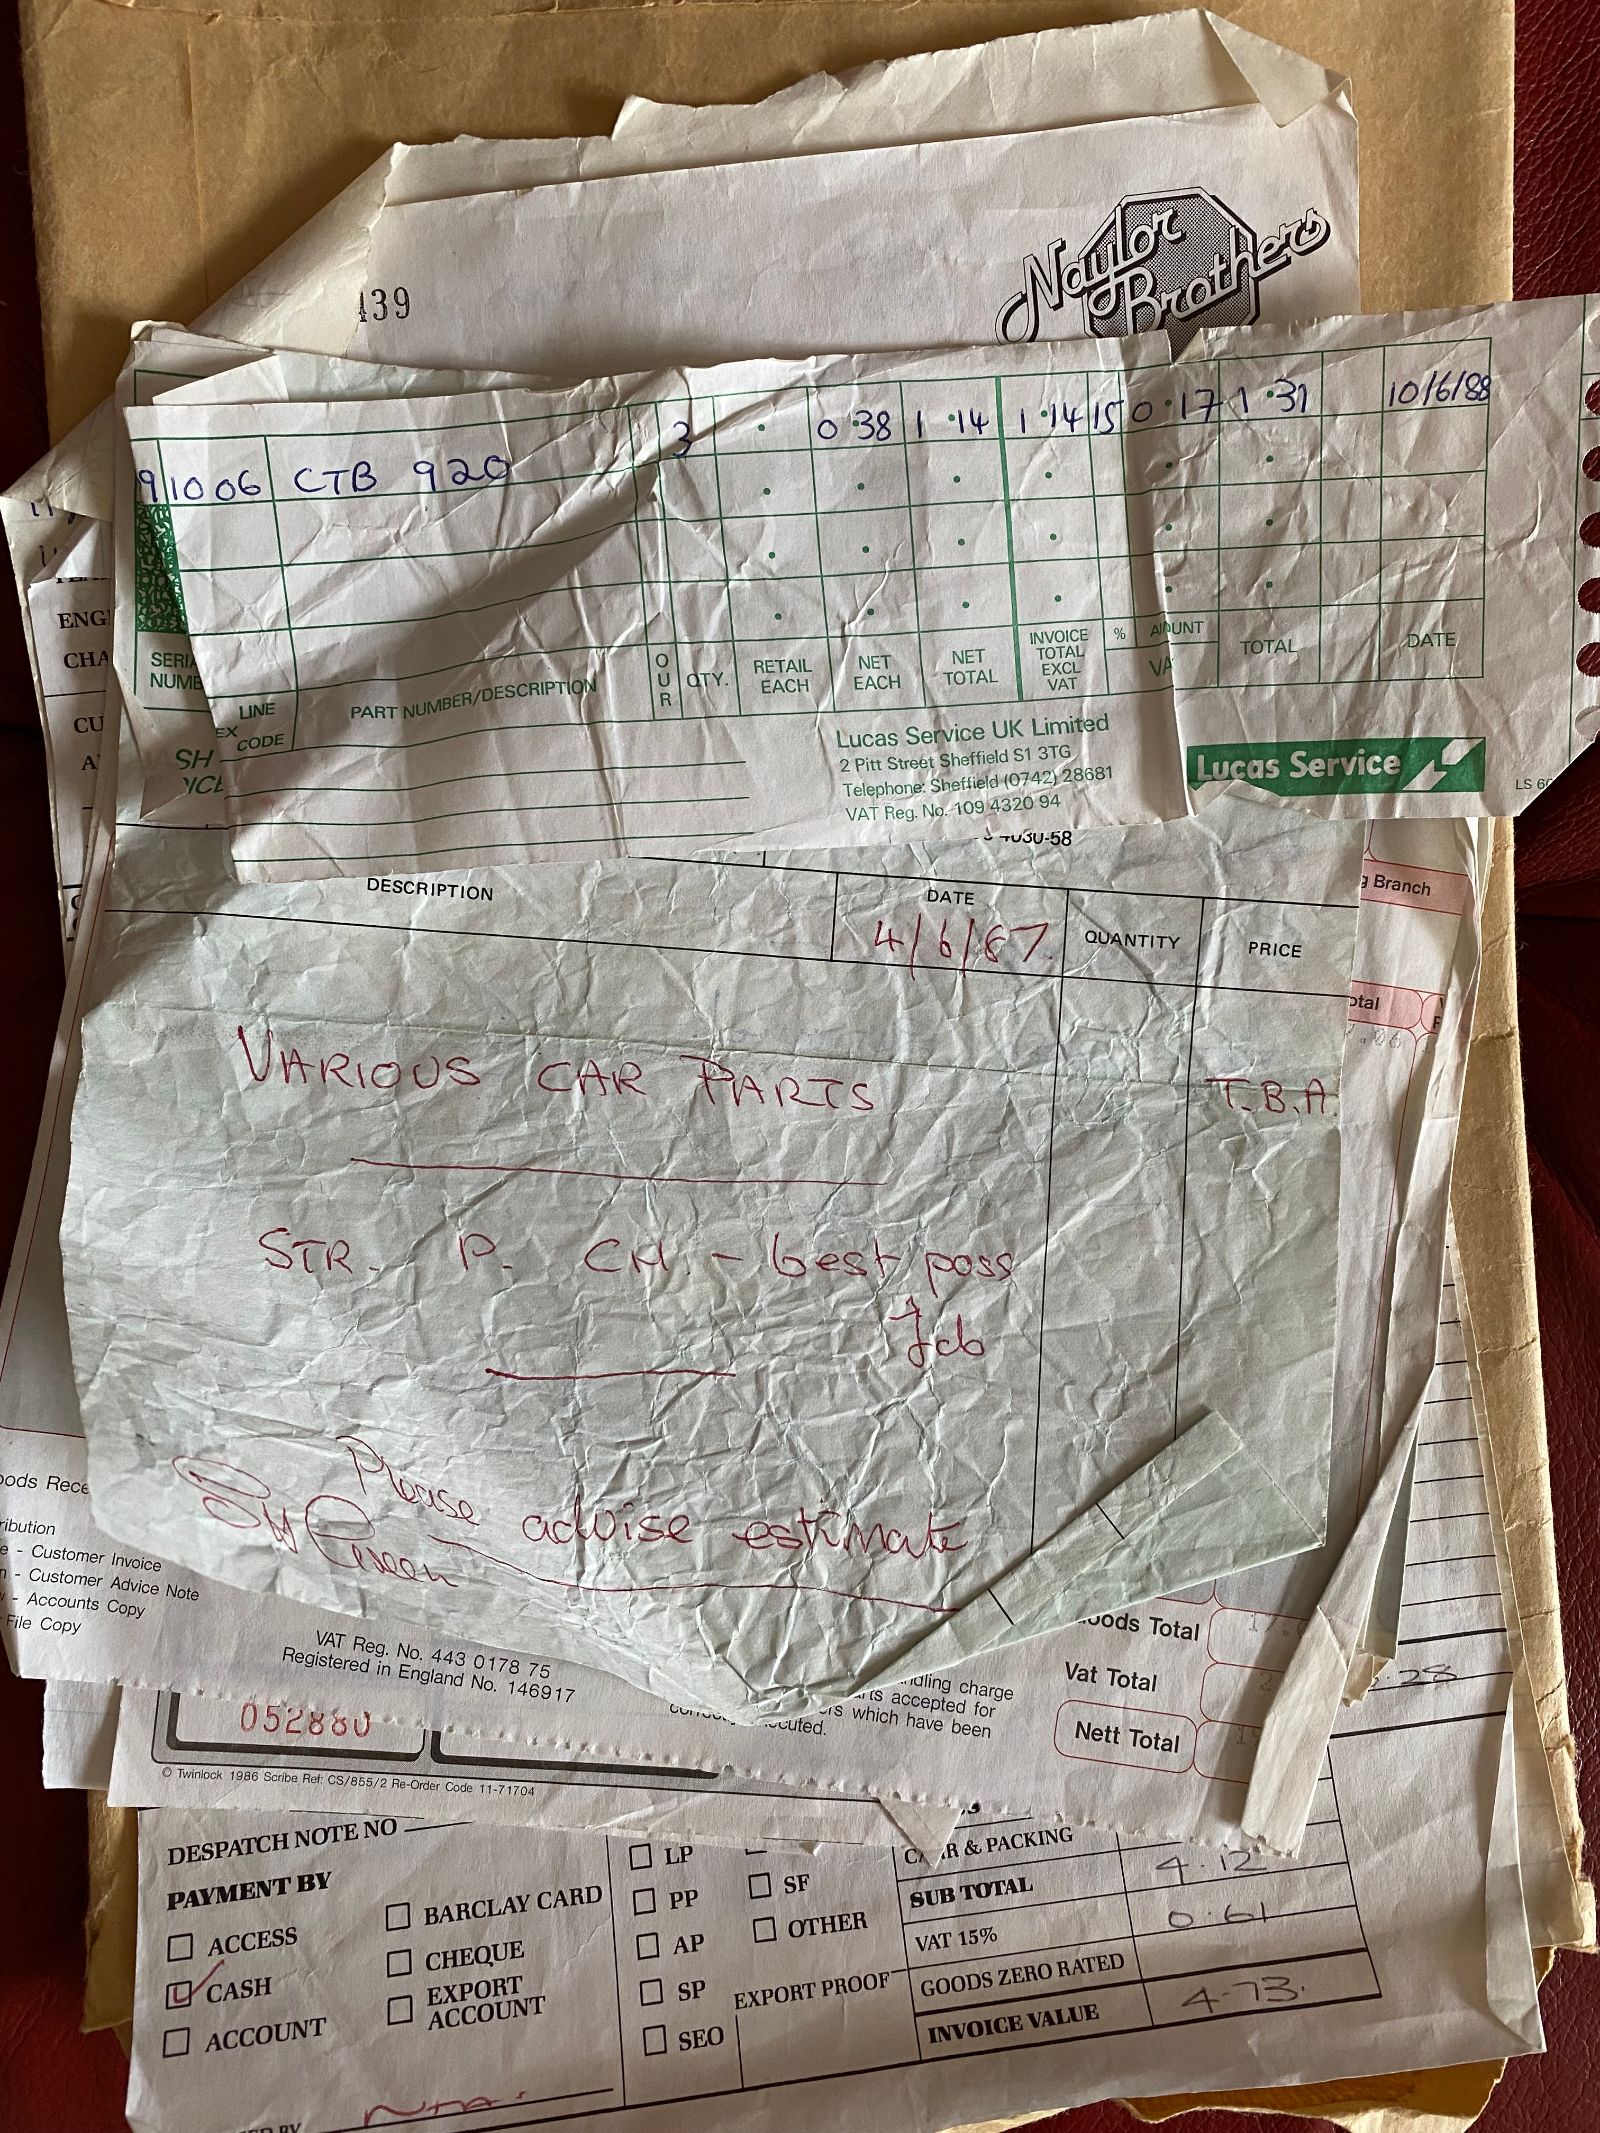 139
Naylor
Brothers
3 0.38 1.14 1.14 15 0.17 1.31 10/6/88
91006 CTB 920
ENG
CHA
CU
SERIA
NUMB
LINE
CODE
PART NUMBER/DESCRIPTION
OUR
QTY.
RETAIL
EACH
NET
EACH
NET
TOTAL
INVOICE
TOTAL
EXCL
VAT
%
AMOUNT
VA
TOTAL
DATE
SH
ICE
Lucas Service UK Limited
2 Pitt Street Sheffield S1 3TG
Telephone: Sheffield (0742) 28681
VAT Reg. No. 109 4320 94
Lucas Service
LS 60
4030-58
DESCRIPTION
DATE
4/6/87
QUANTITY
PRICE
g Branch
otal
VARIOUS CAR PARTS T.B.A.
STR. P. CH. - best poss
Job
Please advise estimate
oods Rece
ribution
e - Customer Invoice
n - Customer Advice Note
- Accounts Copy
File Copy
VAT Reg. No. 443 0178 75
Registered in England No. 146917
ndling charge
ts accepted for
rs which have been
cuted.
oods Total
Vat Total
Nett Total
28
052880
© Twinlock 1986 Scribe Ref: CS/855/2 Re-Order Code 11-71704
DESPATCH NOTE NO
PAYMENT BY
ACCESS
CASH
ACCOUNT
BARCLAY CARD
CHEQUE
EXPORT
ACCOUNT
LP
PP
AP
SP
SEO
SF
OTHER
EXPORT PROOF
CARR & PACKING
SUB TOTAL 4.12
VAT 15% 0.61
GOODS ZERO RATED
INVOICE VALUE 4.73.
ED BY